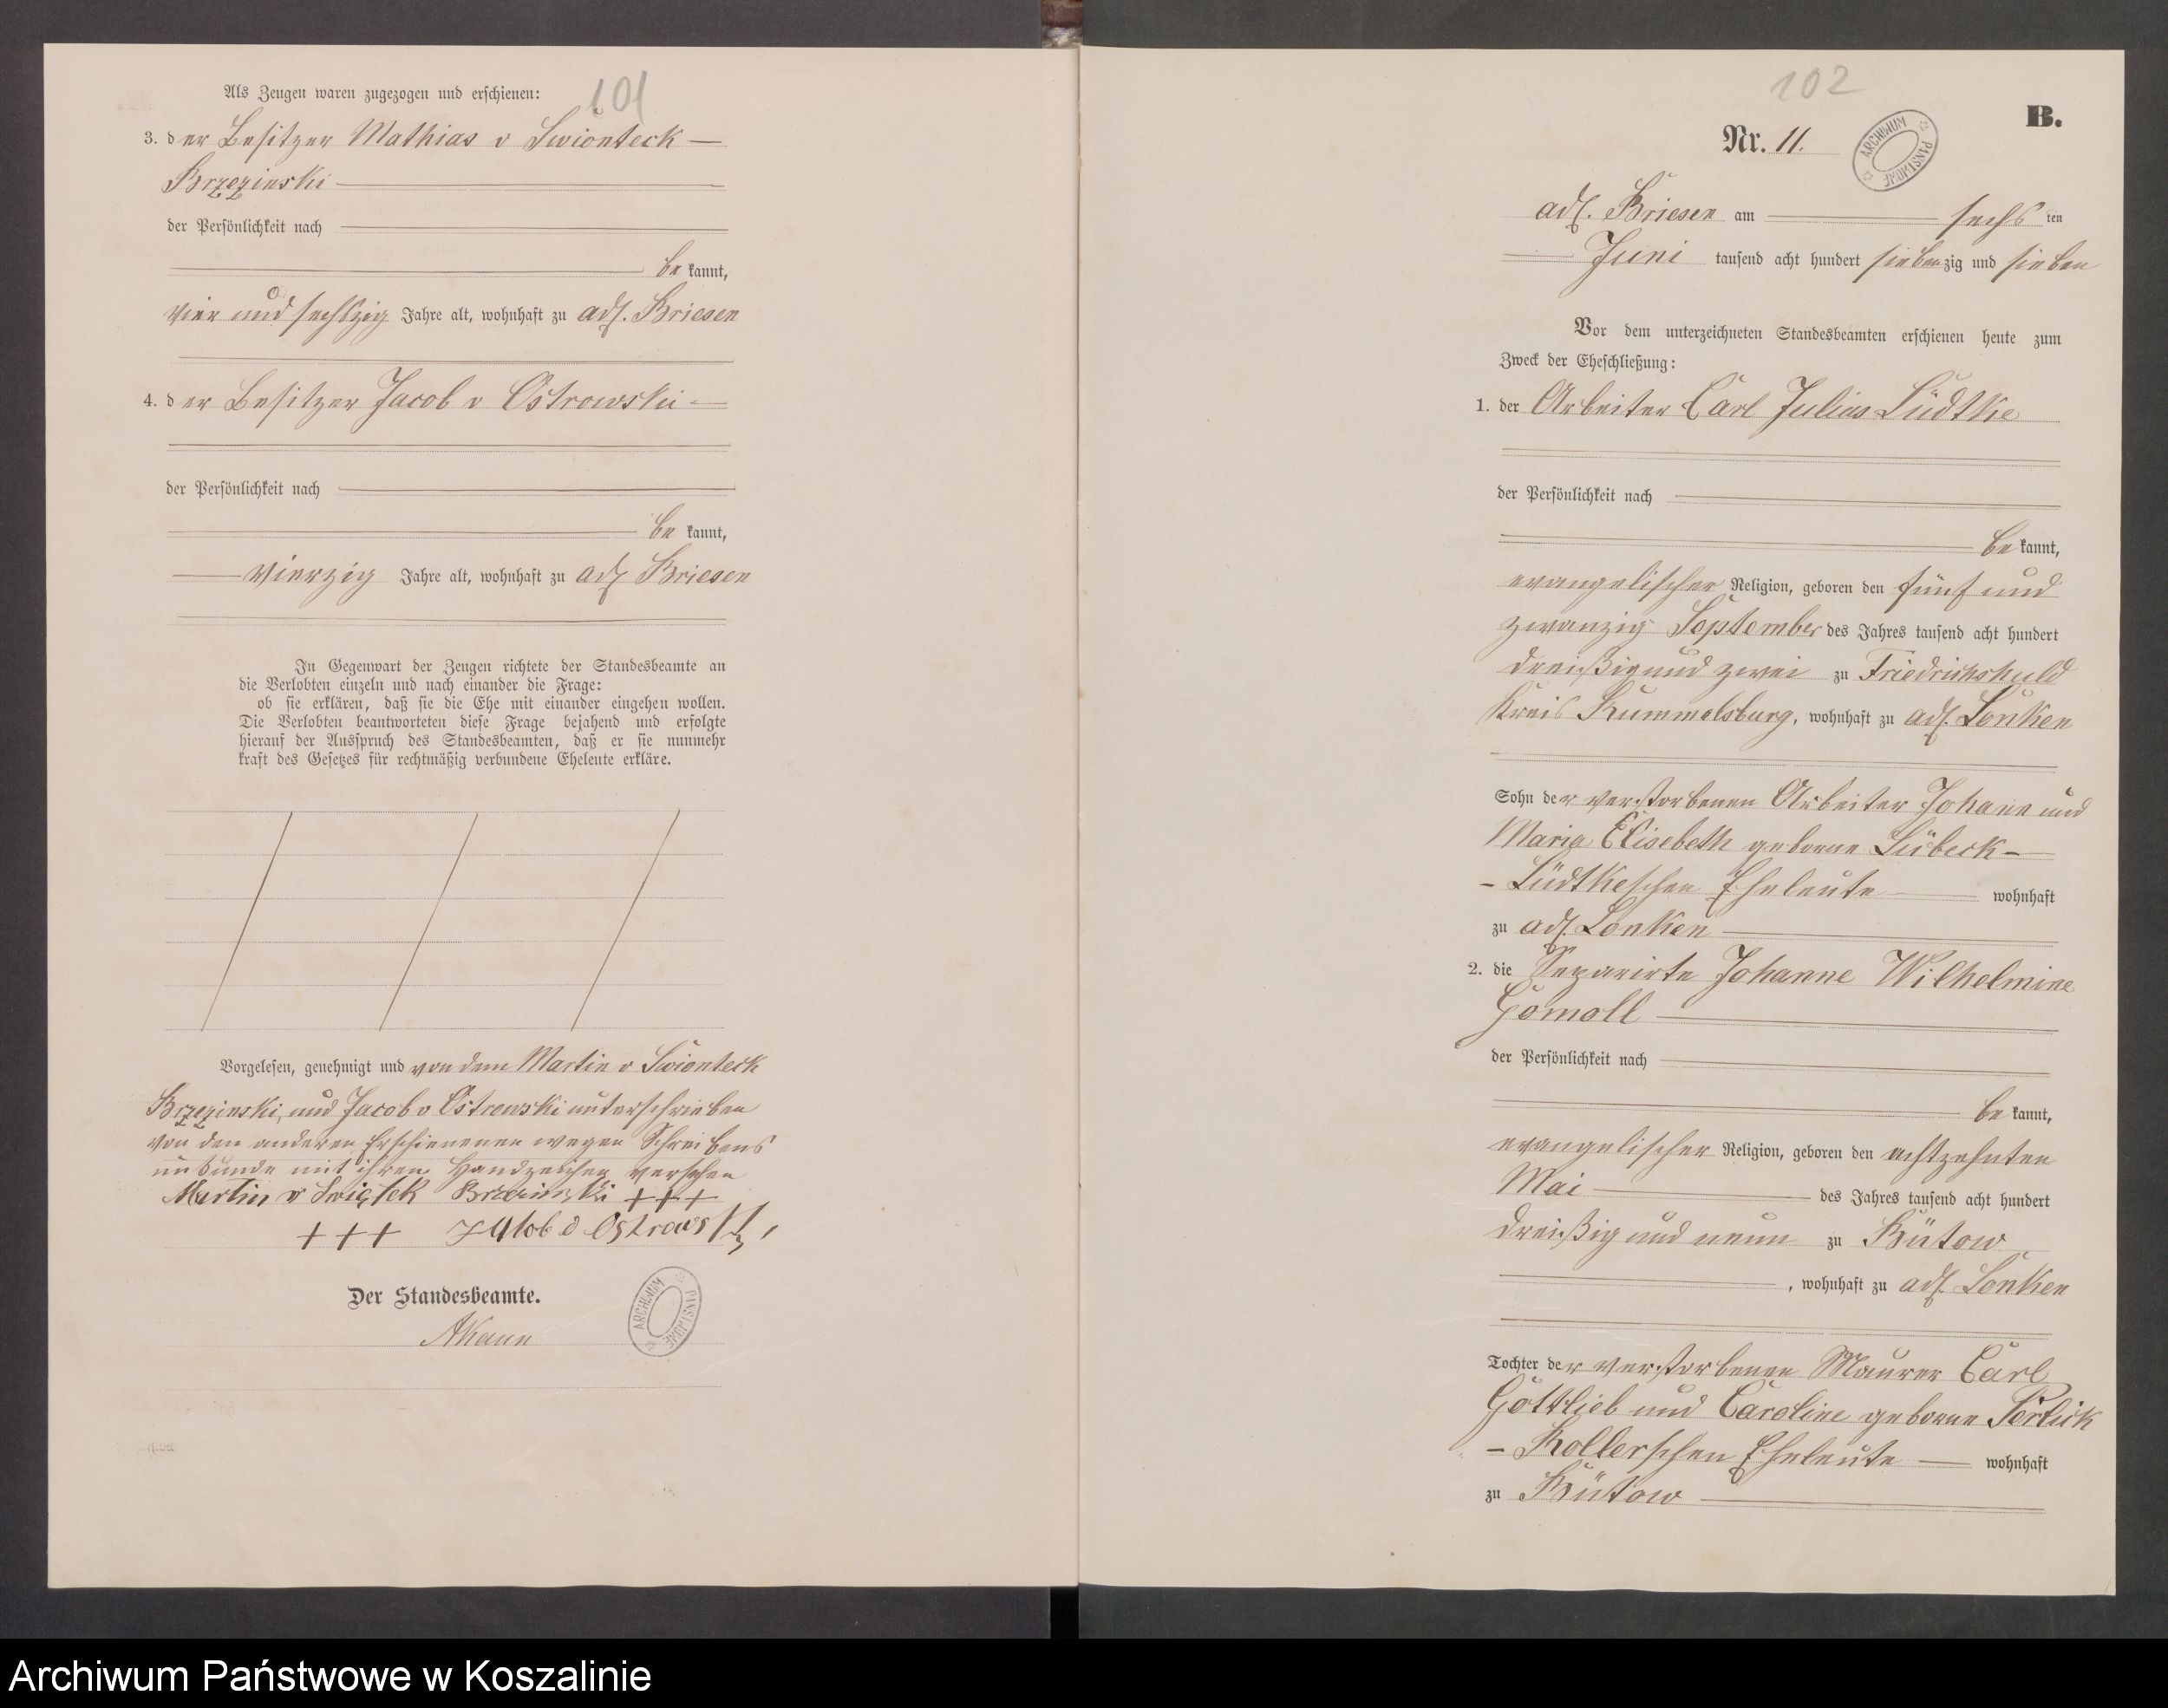 101
Als Zeugen waren zugezogen und erschienen:
3. der Besitzer Mathias v Swionteck —
Brzezinski
der Persönlichkeit nach
be kannt,
vier und sechszig Jahre alt, wohnhaft zu adl. Briesen
4. der Besitzer Jacob v Ostrowski —
der Persönlichkeit nach
be kannt,
vierzig Jahre alt, wohnhaft zu adl Briesen
In Gegenwart der Zeugen richtete der Standesbeamte an
die Verlobten einzeln und nach einander die Frage:
ob sie erklären, daß sie die Ehe mit einander eingehen wollen.
Die Verlobten beantworteten diese Frage bejahend und erfolgte
hierauf der Ausspruch des Standesbeamten, daß er sie nunmehr
kraft des Gesetzes für rechtmäßig verbundene Eheleute erkläre.
Vorgelesen, genehmigt und von dem Martin v Swionteck
Brzezinski, und Jacob v Ostrowski unterschrieben
von den anderen Erschienenen wegen Schreibens
unkunde mit ihren Handzeichen versehen
Martin v Swiątek Brzezinski +++
+++ Jakob v Ostrowski,
Der Standesbeamte.
ARCHIWUM PAŃSTWOWE
AKaun
102
B.
Nr. 11.
ARCHIWUM PAŃSTWOWE
adl. Briesen am sechs ten
Juni tausend acht hundert siebenzig und sieben
Vor dem unterzeichneten Standesbeamten erschienen heute zum
Zweck der Eheschließung:
1. der Arbeiter Carl Julius Lüdtke
der Persönlichkeit nach
be kannt,
evangelischer Religion, geboren den fünf und
zwanzig September des Jahres tausend acht hundert
dreißig und zwei zu Friedrichshuld
Kreis Rummelsburg, wohnhaft zu adl. Lonken
Sohn der verstorbenen Arbeiter Johann und
Maria Elisebeth geborne Lübeck —
– Lüdtkeschen Eheleute wohnhaft
zu adl. Lonken
2. die Separirte Johanne Wilhelmine
Gomoll
der Persönlichkeit nach
be kannt,
evangelischer Religion, geboren den achtzehnten
Mai des Jahres tausend acht hundert
dreißig und neun zu Bütow
, wohnhaft zu adl. Lonken
Tochter der verstorbenen Maurer Carl
Gottlieb und Caroline geborne
– Kollerschen Eheleute — wohnhaft
zu Bütow
Archiwum Państwowe w Koszalinie